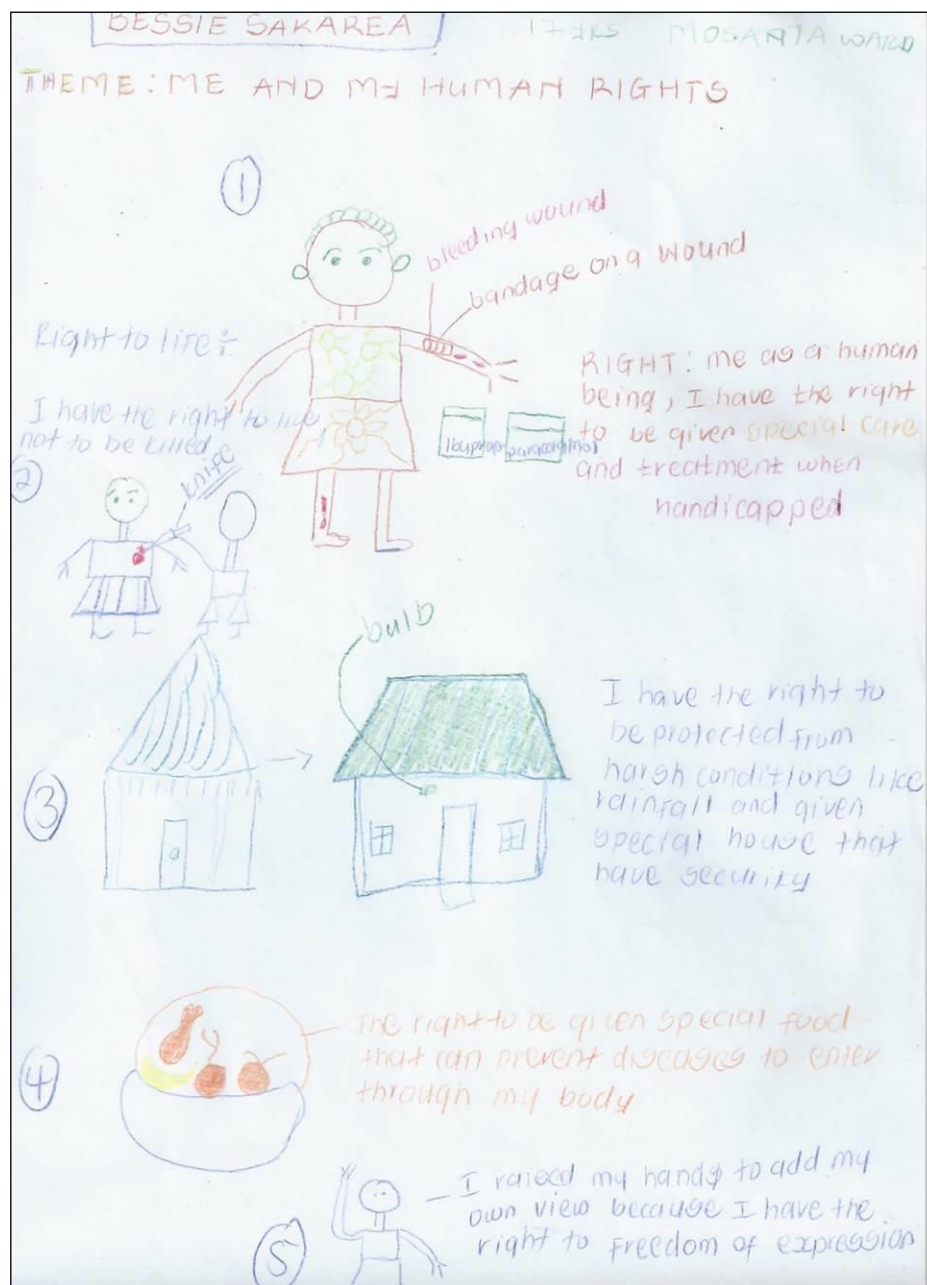 BESSIE SAKAREA
17 yrs MOSANTA WARD
THEME: ME AND MY HUMAN RIGHTS
1
bleeding wound
bandage on a wound
ibuprofen
paracetamol
RIGHT: me as a human
being, I have the right
to be given special care
and treatment when
handicapped
Right to life:
I have the right to live
not to be killed
2
knife
3
bulb
I have the right to
be protected from
harsh conditions like
rainfall and given
special house that
have security
4
The right to be given special food
that can prevent diseases to enter
through my body
5
I raised my hands to add my
own view because I have the
right to freedom of expression